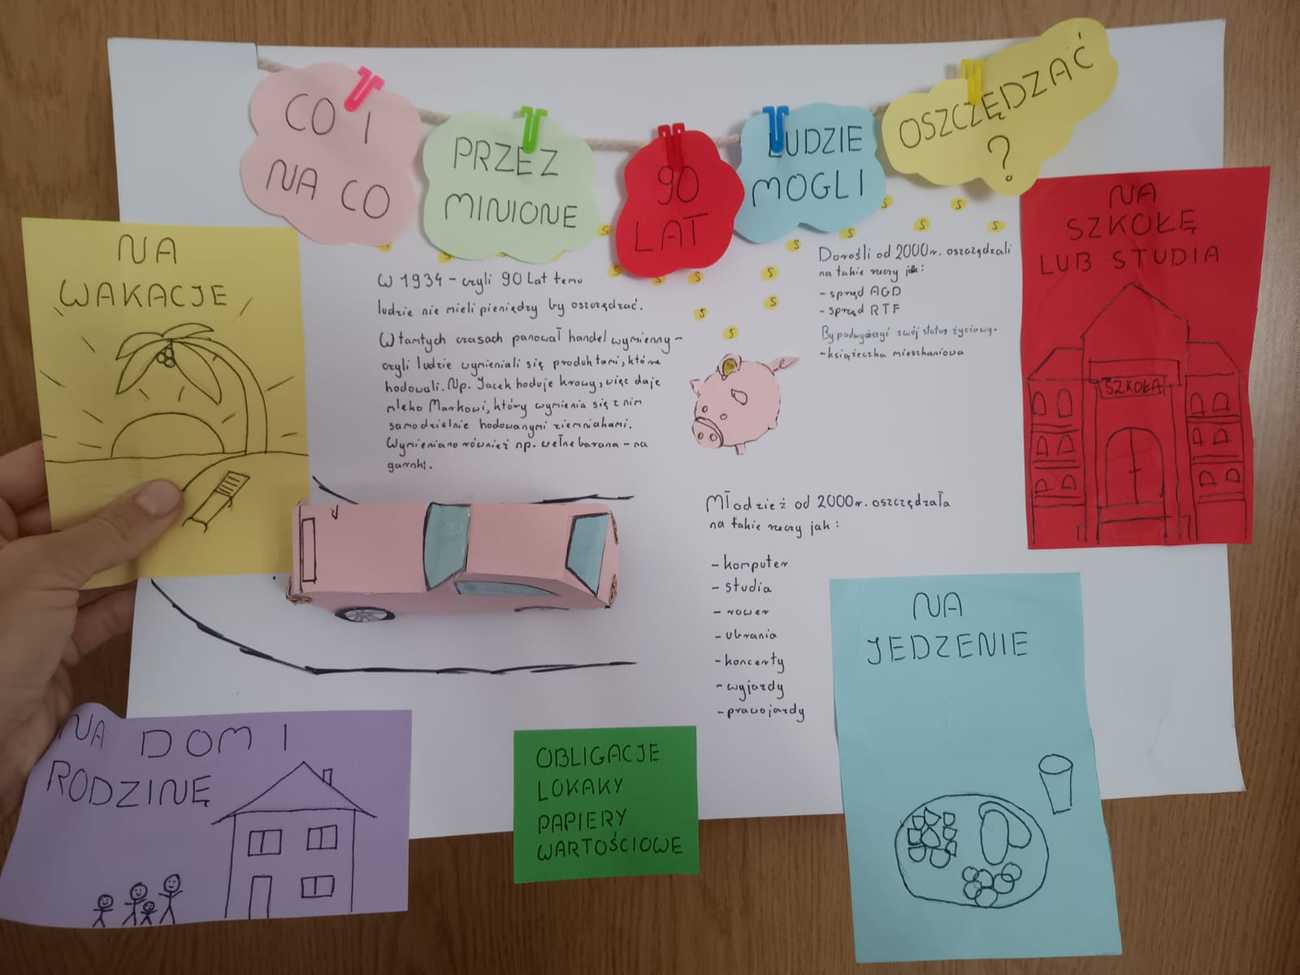 CO I
NA CO
PRZEZ
MINIONE
90
LAT
LUDZIE
MOGLI
OSZCZĘDZAĆ
?
NA
WAKACJE
W 1934 - czyli 90 Lat temu
ludzie nie mieli pieniędzy by oszczędzać.
W tamtych czasach panował handel wymienny -
czyli ludzie wymieniali się produktami, które
hodowali. Np. Jacek hoduje krowy, więc daje
mleko Markowi, który wymienia się z nim
samodzielnie hodowanymi ziemniakami.
Wymieniano również np. wełnę barana - na
garnki.
Dorośli od 2000r. oszczędzali
na takie rzeczy jak:
- sprzęd AGD
- sprzęd RTF
By podwyższyć swój status życiowy.
- książeczka mieszkaniowa
NA
SZKOŁĘ
LUB STUDIA
SZKOŁA
Młodzież od 2000r. oszczędzała
na takie rzeczy jak:
- komputer
- studia
- rower
- ubrania
- koncerty
- wyjazdy
- prawojazdy
NA
JEDZENIE
NA DOM I
RODZINĘ
OBLIGACJE
LOKAKY
PAPIERY
WARTOŚCIOWE